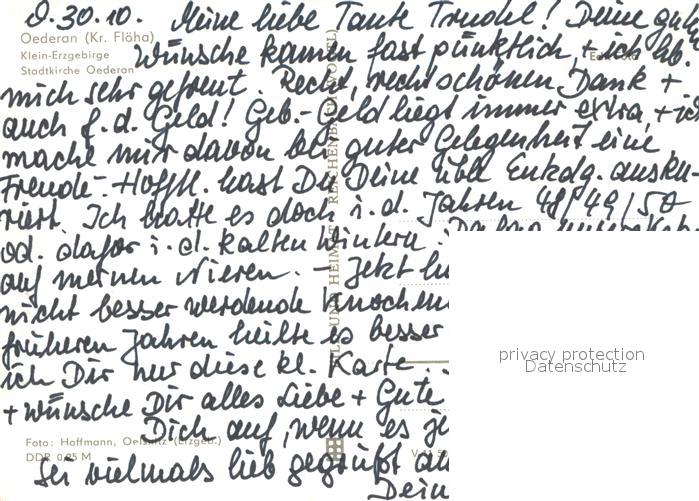 O. 30. 10. Meine liebe Tante Trudel! Deine guten
Oederan (Kr. Flöha)
Klein-Erzgebirge
Stadtkirche Oederan
Wünsche kamen fast pünktlich, + ich hb.
mich sehr gefreut. Recht, recht schönen Dank +
auch f. d. Geld! Geb.-Geld liegt immer extra, + ich
mache mir davon bei guter Gelegenheit eine
Freude. Hofftl. hast Du Deine üble Entzdg. ausku-
riert. Ich hatte es doch i. d. Jahren 48/49/50
od. dafor i. d. kalten Wintern.
auf meinen Nieren. – Jetzt
nicht besser werdende Knochen
früheren Jahren heilte es besser
ich Dir nur diese kl. Karte.
+ wünsche Dir alles Liebe + Gute
Dich auf, wenn es
Sei vielmals lieb gegrüßt
Foto: Hoffmann, Oelsnitz (Erzgeb.)
DDR 0,25 M
BILD UND HEIMAT REICHENBACH
privacy protection
Datenschutz